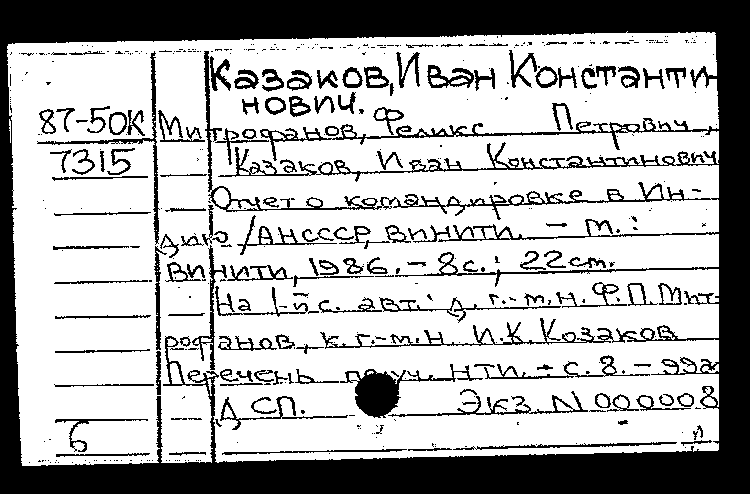 Казаков, Иван Константи-
нович.
87-50К Митрофанов, Феликс Петрович,
7315 Казаков, Иван Константинович
Отчет о командировке в Ин-
дию /АНСССР, ВИНИТИ. – М.:
ВИНИТИ, 1986. – 8с.; 22см.
На 1-й с. авт.: д. г.-м.н. Ф.П. Мит-
рофанов, к. г.-м.н И.К. Козаков
Перечень НТИ. с. 8. – 99а
ДСП. Экз. N 000008
6